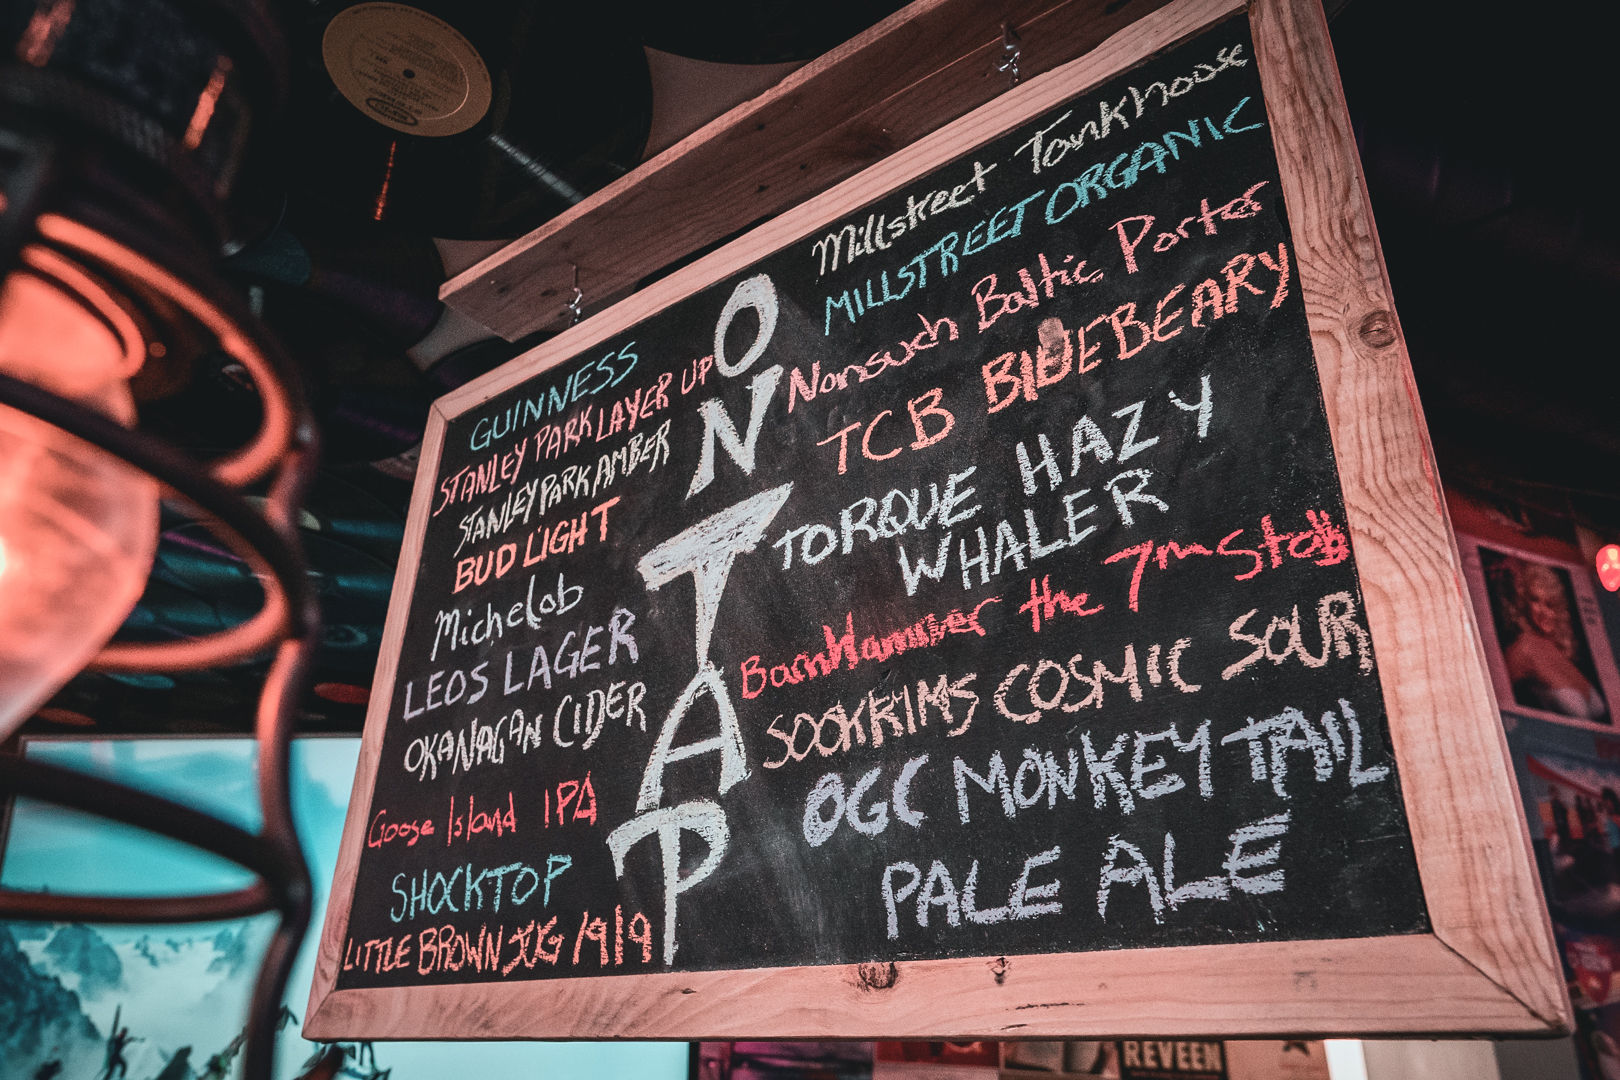 GUINNESS
STANLEY PARK LAYER UP
STANLEY PARK AMBER
BUD LIGHT
Michelob
LEOS LAGER
OKANAGAN CIDER
Goose Island IPA
SHOCKTOP
LITTLE BROWN JUG 1919
ON TAP
Millstreet Tankhouse
MILLSTREET ORGANIC
Nonsuch Baltic Porter
TCB BLUEBEARY
TORQUE HAZY
WHALER
BarnHammer the 7m Stab
SOOKRIMS COSMIC SOUR
OGC MONKEY TAIL
PALE ALE
REVEEN